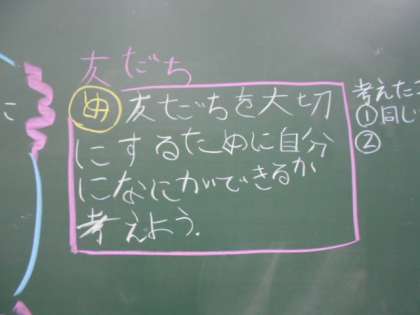 友だち
め 友だちを大切
にするために自分
になにができるか
考えよう.
考えたこ
①同じ
②
こ